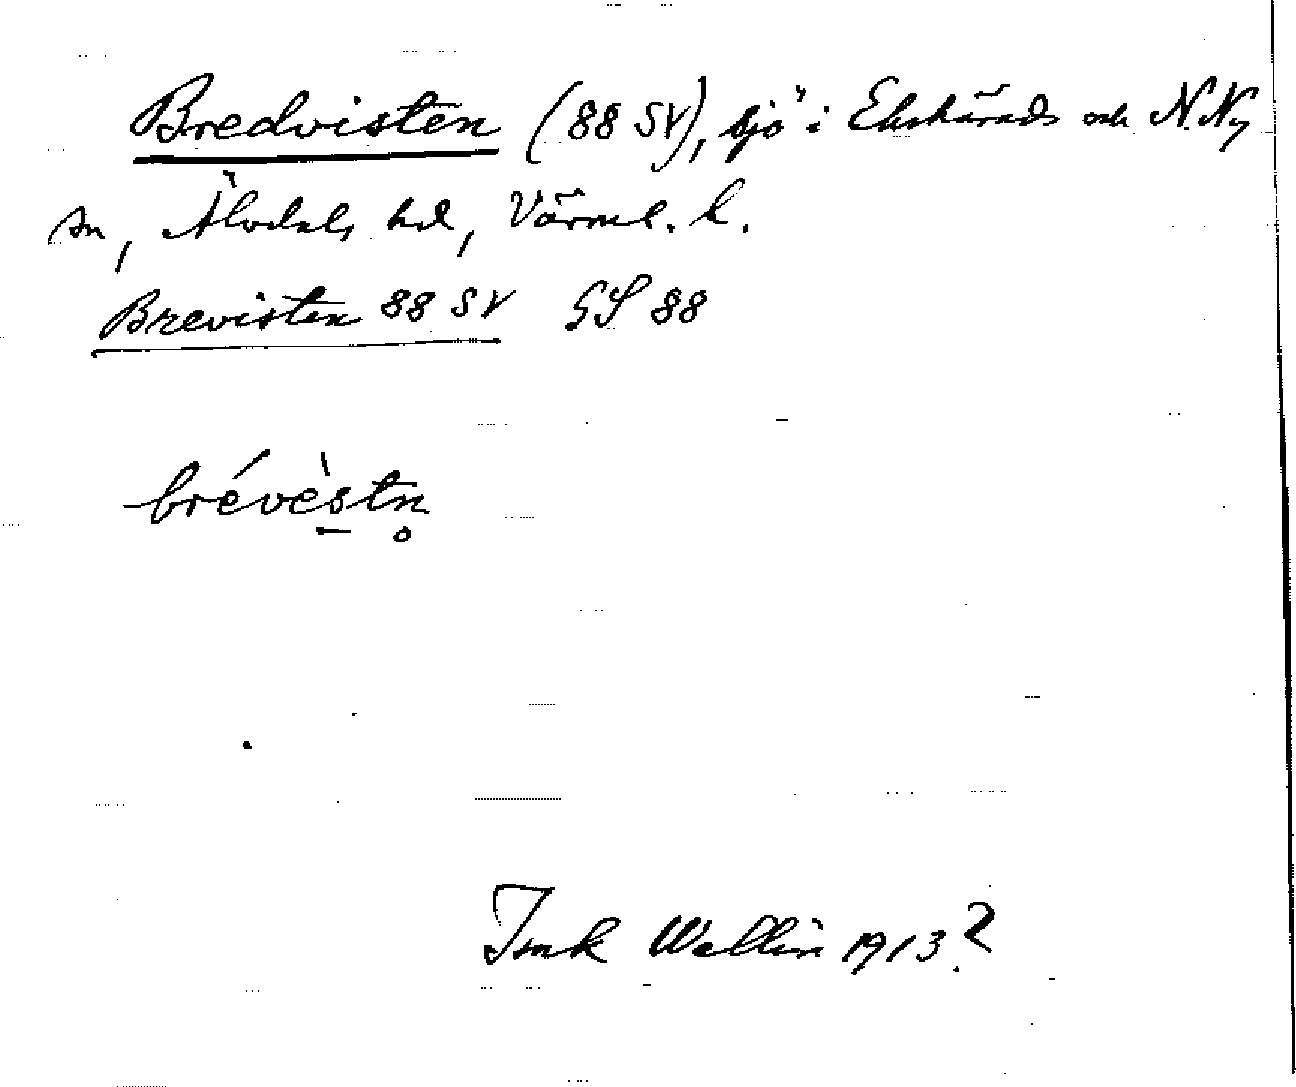 Bredvisten (88 SV), sjö i Ekshärads och N. Ny
sn, Älvdals hd, Värml. l.
Brevisten 88 SV GS 88
brévèstn̥
Isak Wallin 1913?